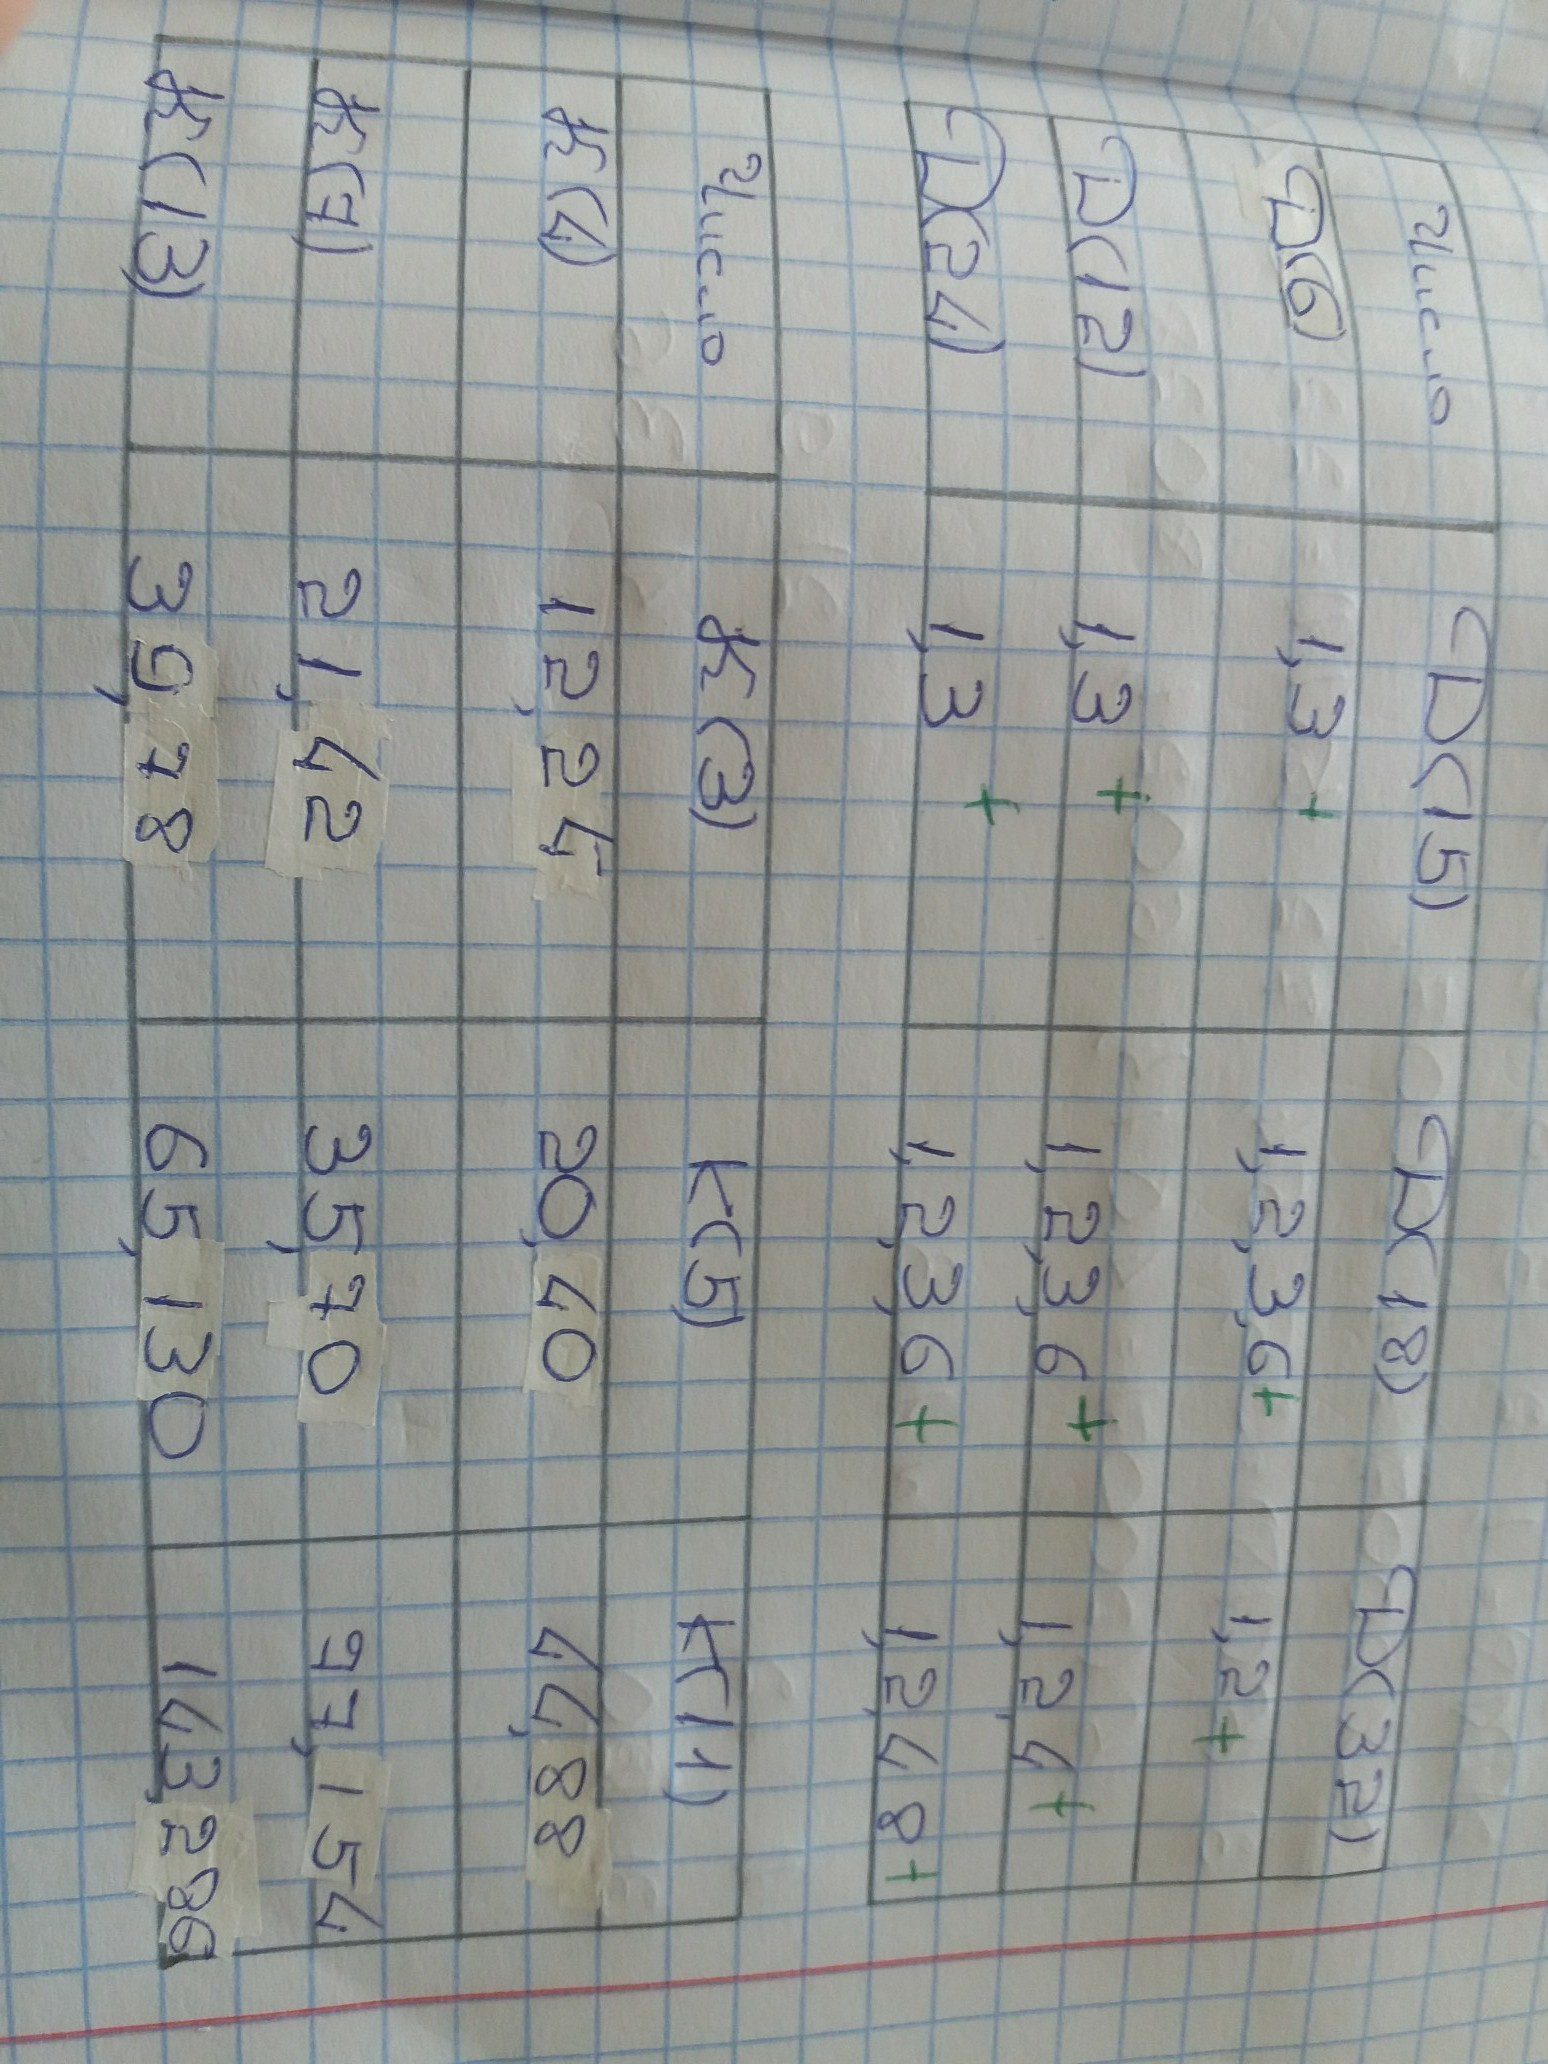 Число D(15) D(18) D(32)
D(6) 1,3 + 1,2,3,6 + 1,2 +
D(12) 1,3 + 1,2,3,6 + 1,2,4 +
D(24) 1,3 + 1,2,3,6 + 1,2,4,8 +
Число К(3) К(5) К(11)
К(4) 12, 24 20, 40 44, 88
К(7) 21, 42 35, 70 77, 154
К(13) 39, 78 65, 130 143, 286